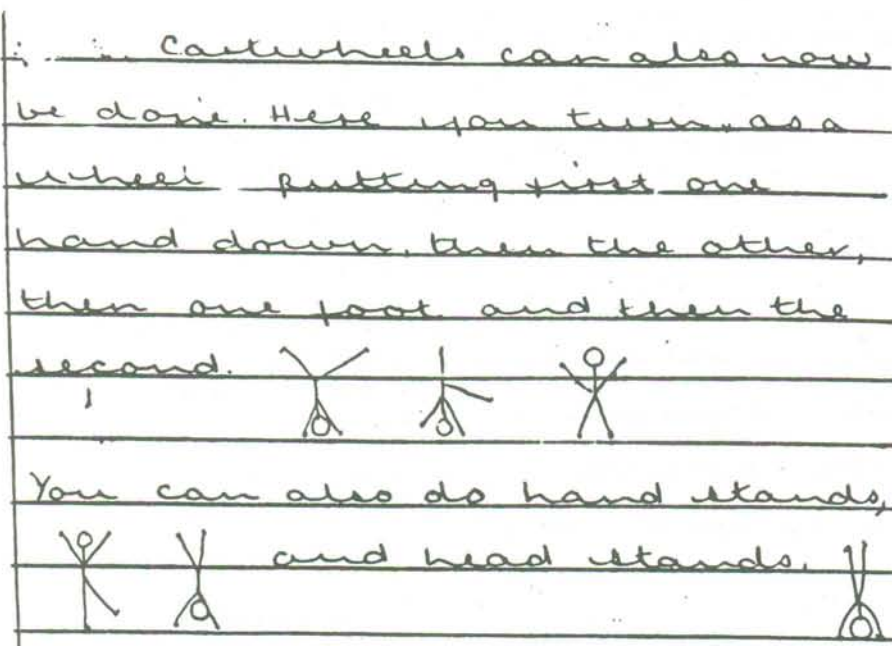 Cartwheels can also now
be done. Here you turn as a
wheel putting first one
hand down, then the other,
then one foot and then the
second.
You can also do hand stands,
and head stands.